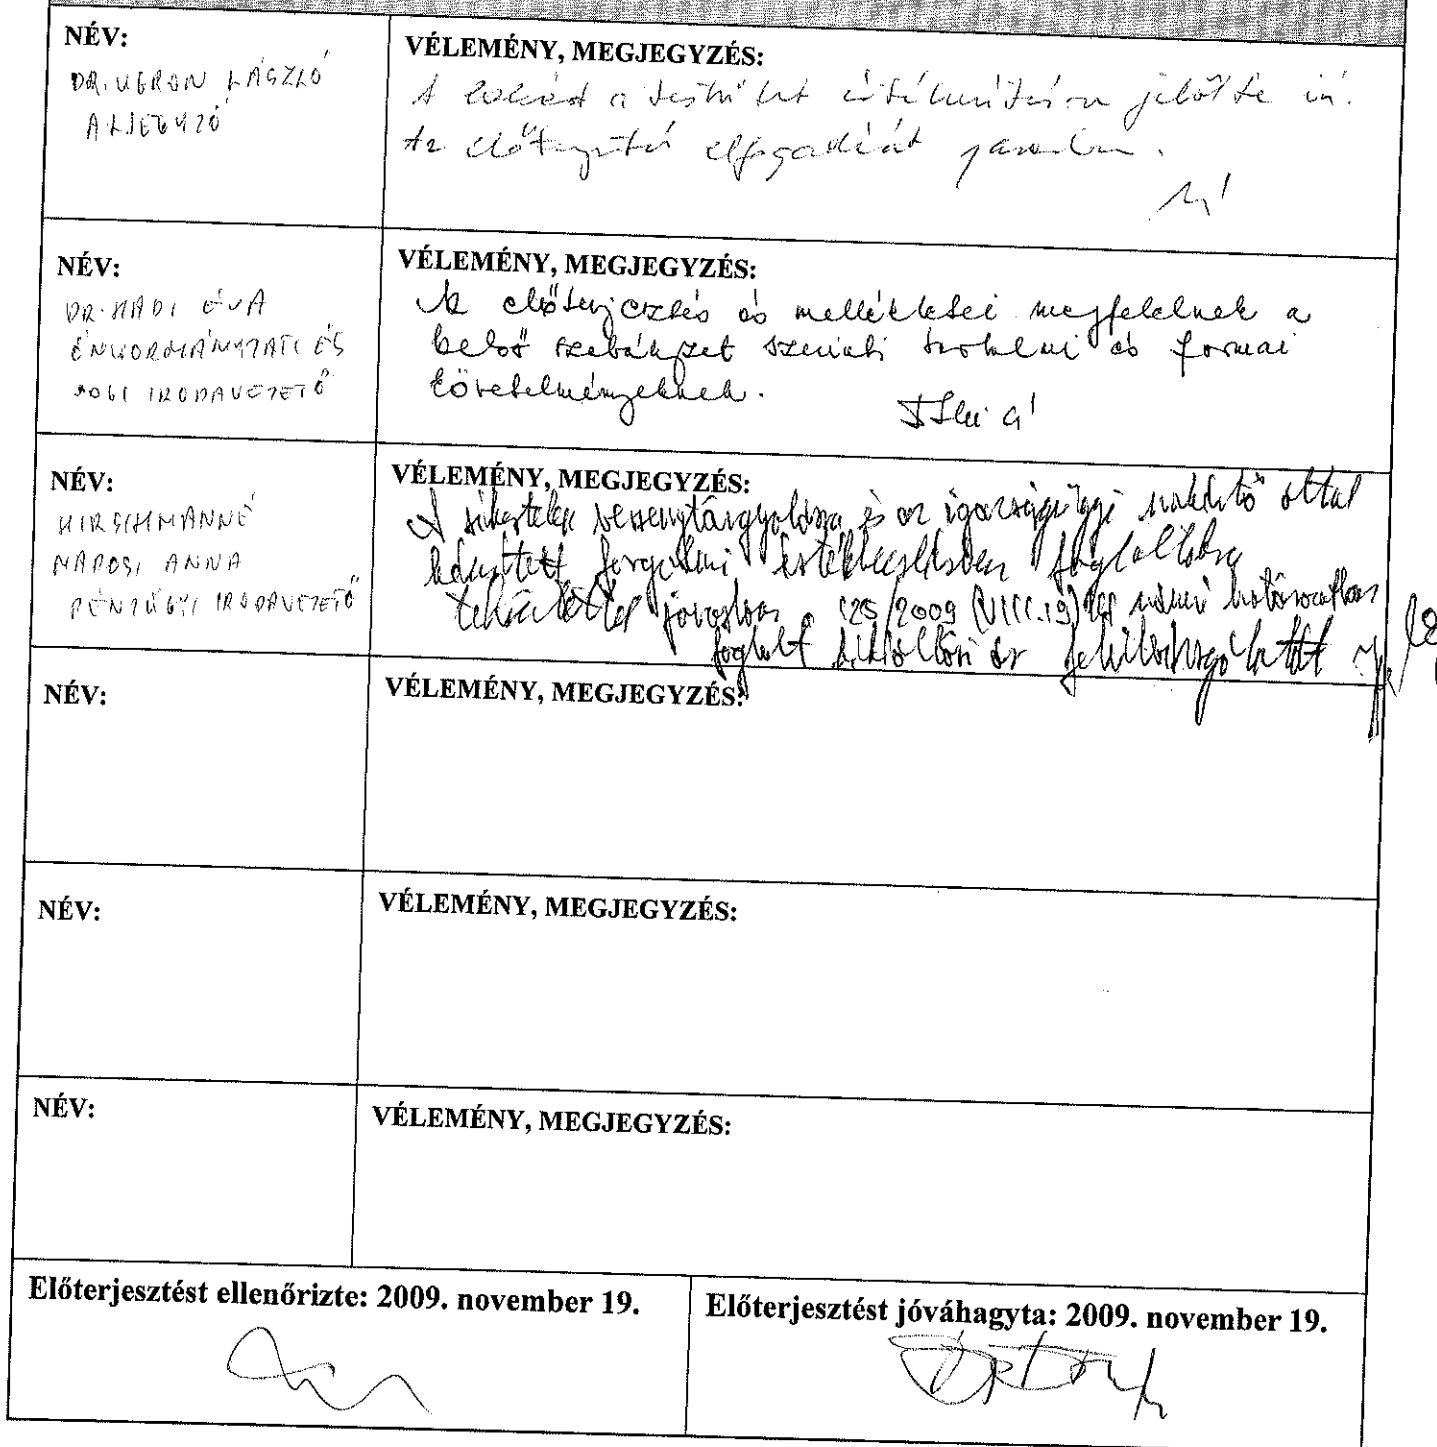 NÉV:
DR. UGRON LÁSZLÓ
ALJEGYZŐ
VÉLEMÉNY, MEGJEGYZÉS:
A lakást a testület értékesítésre jelölte
Az előterjesztés elfogadását javaslom.
NÉV:
DR. MÁDI ÉVA
ÖNKORMÁNYZATI ÉS
JOGI IRODAVEZETŐ
VÉLEMÉNY, MEGJEGYZÉS:
Az előterjesztés és mellékletei megfelelnek a
belső szabályzat szerinti tartalmi és formai
követelményeknek.
NÉV:
HIRSCHMANNÉ
NÁDOSI ANNA
PÉNZÜGYI IRODAVEZETŐ
VÉLEMÉNY, MEGJEGYZÉS:
A sikertelen versenytárgyalásra és az igazságügyi szakértő által
készített forgalmi értékbecslésben foglaltakra
tekintettel javaslom a 125/2009 (VIII.19) számú határozatban
foglalt
NÉV:
VÉLEMÉNY, MEGJEGYZÉS:
NÉV:
VÉLEMÉNY, MEGJEGYZÉS:
NÉV:
VÉLEMÉNY, MEGJEGYZÉS:
Előterjesztést ellenőrizte: 2009. november 19.
Előterjesztést jóváhagyta: 2009. november 19.